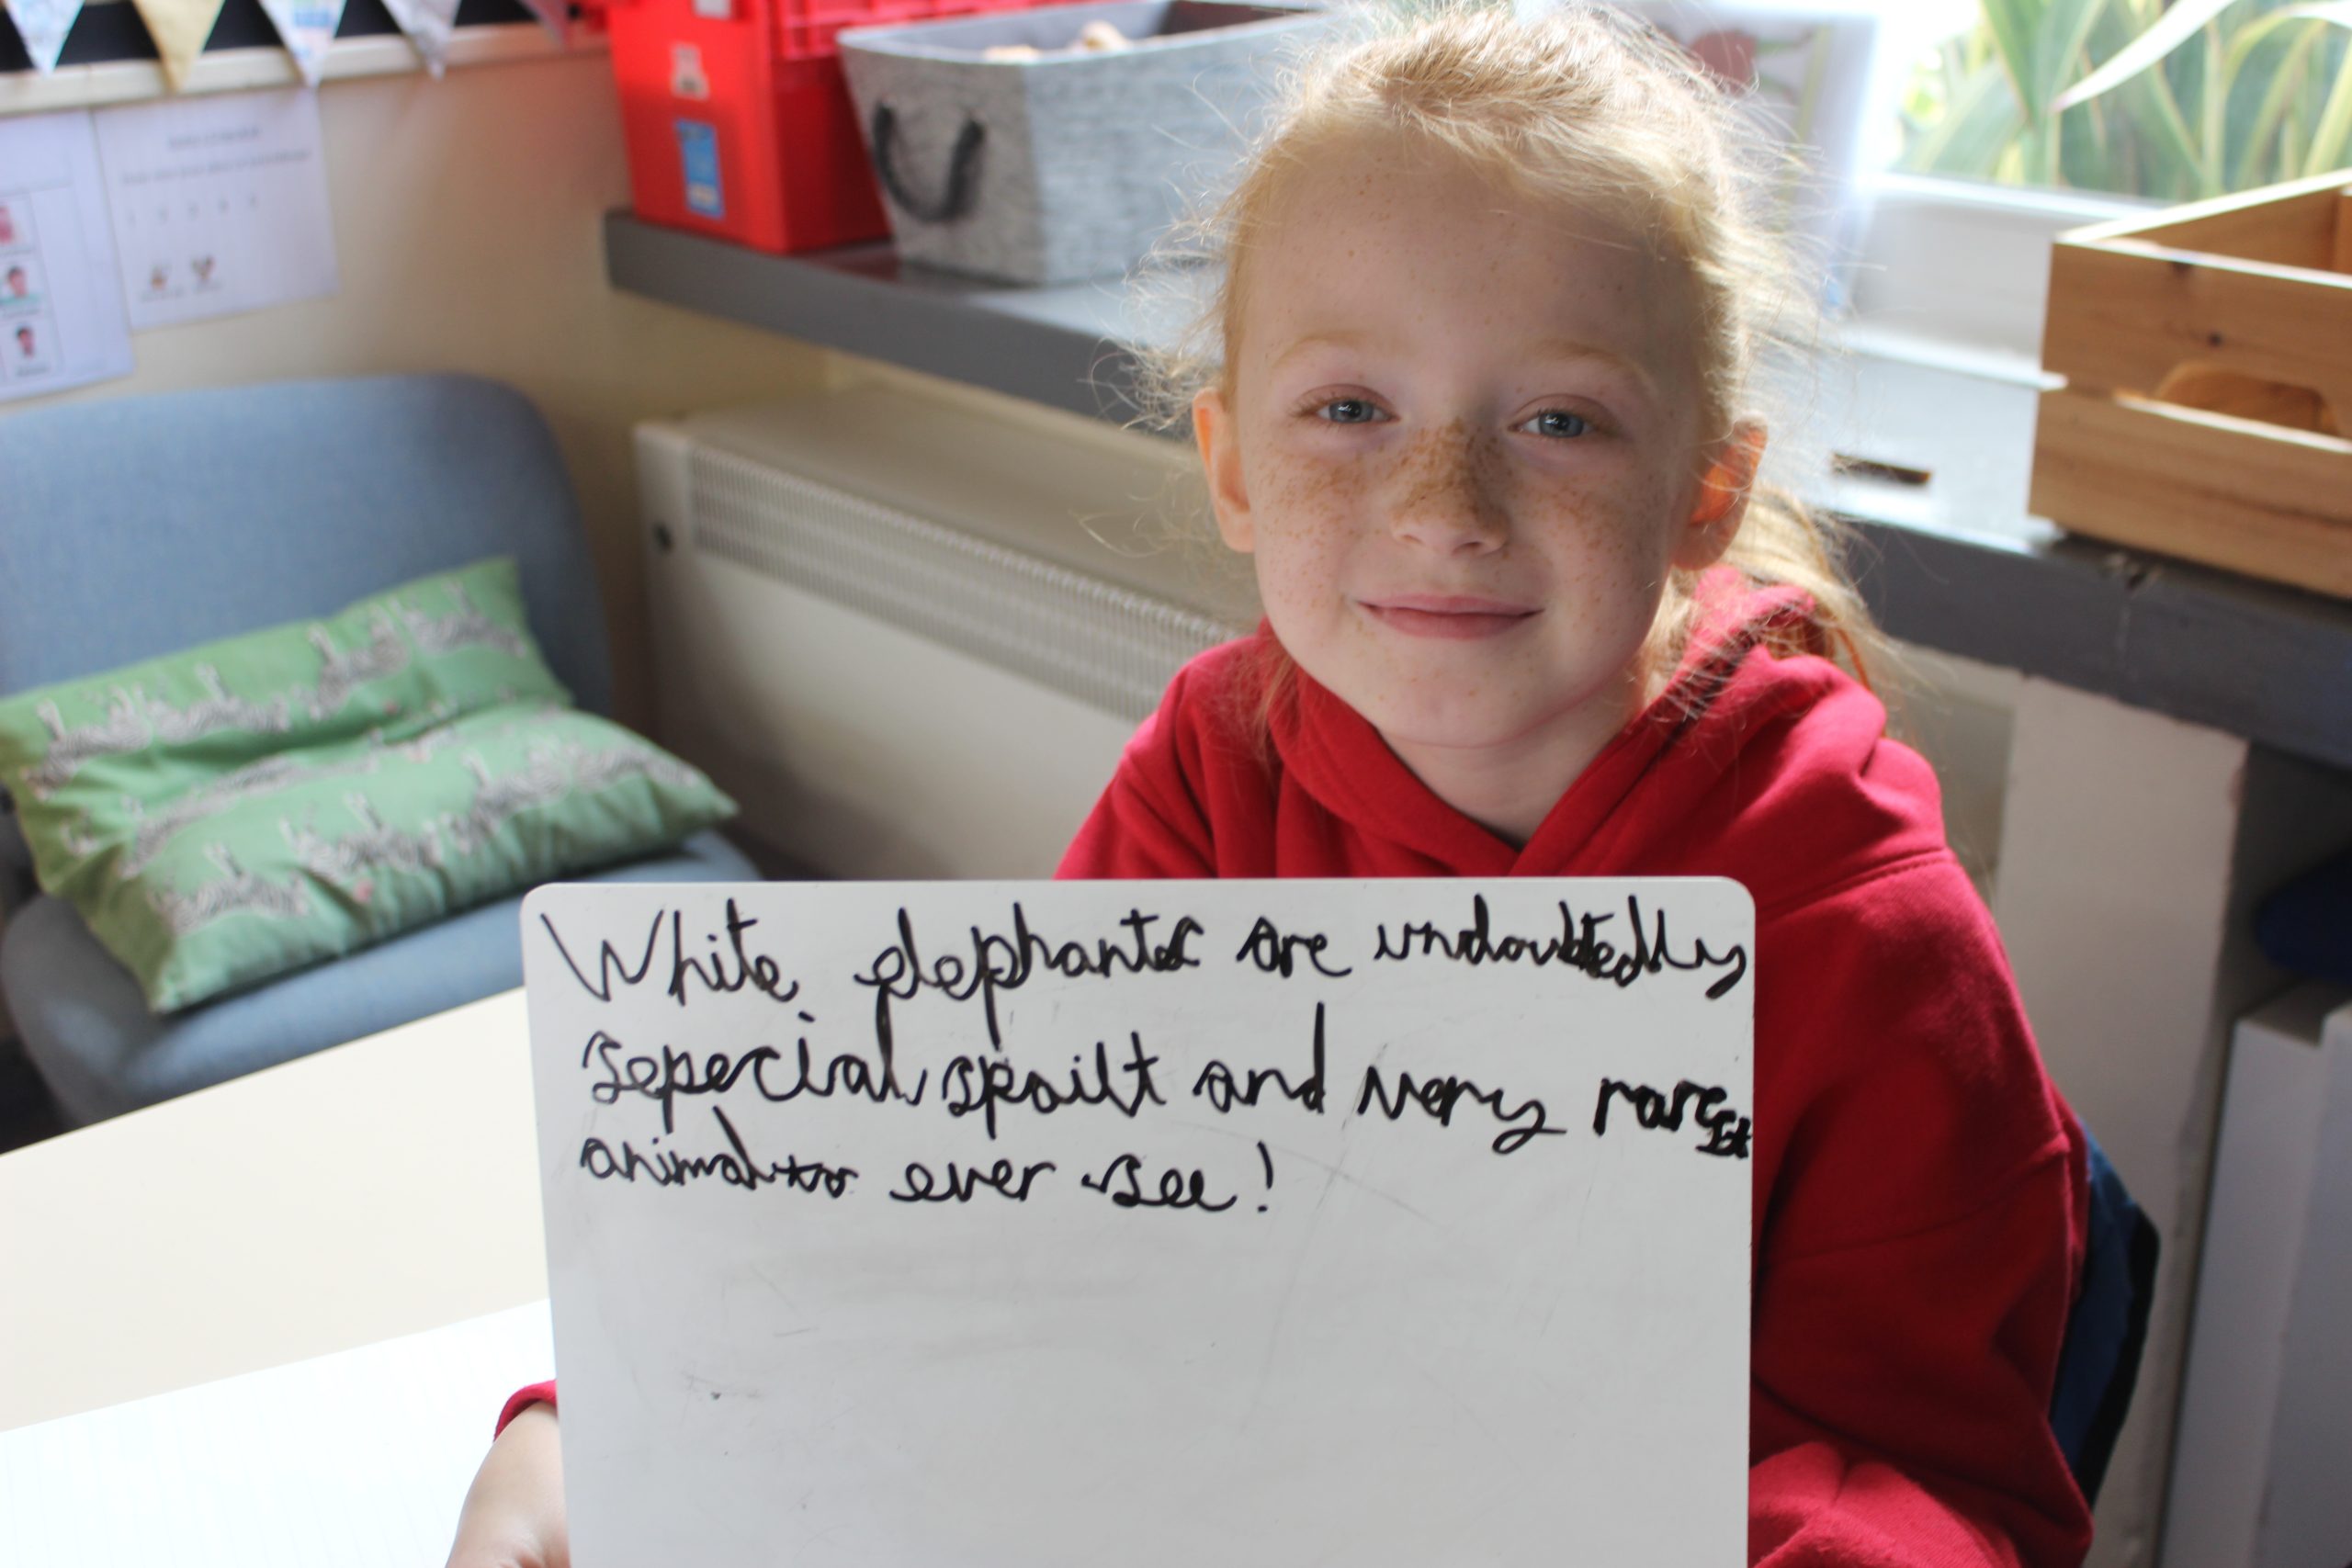 White elephants are undoubtedlly
sepecial spoilt and very rarest
animal ever see!